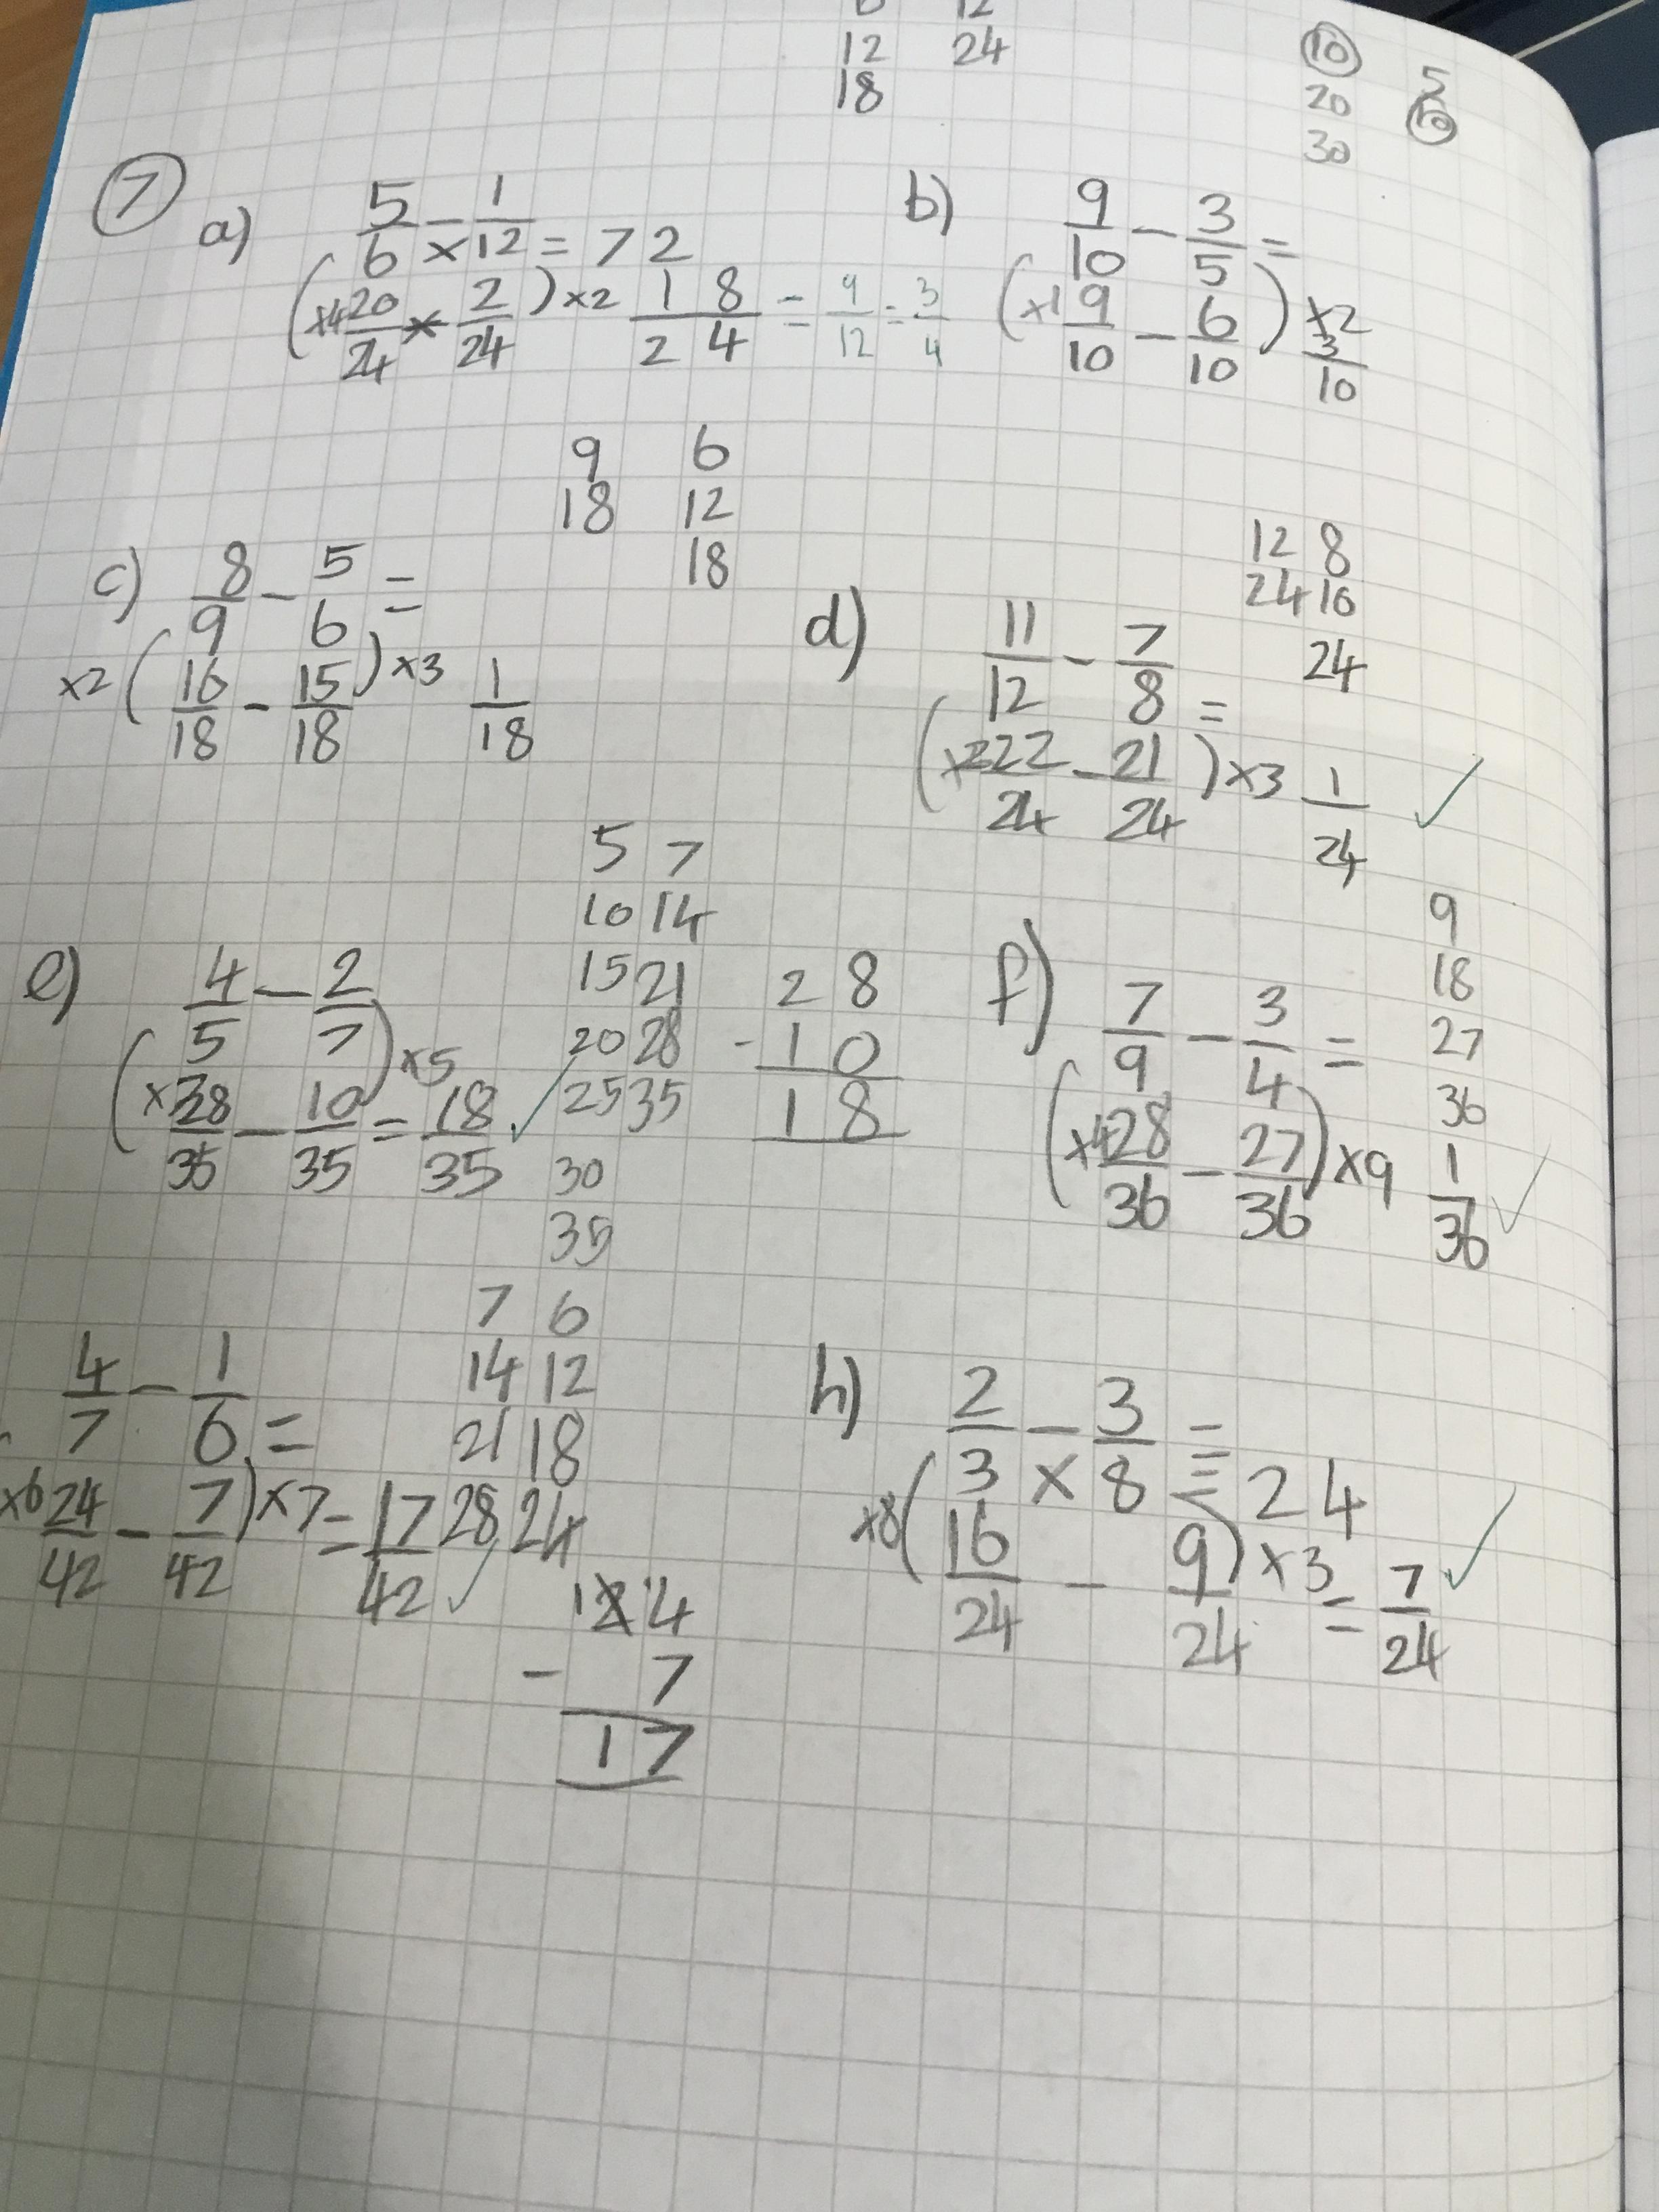 12
12 24
18
10 5
20 10
30
7
a) 5/6 - 1/12 = 72
(×4 20/24 × 2/24) ×2 18/24 = 9/12 = 3/4
b) 9/10 - 3/5 =
(×1 9/10 - 6/10) ×2 3/10
9 6
18 12
18
c) 8/9 - 5/6 =
×2 (16/18 - 15/18) ×3 1/18
12 8
24 16
24
d) 11/12 - 7/8 =
(×2 22/24 - 21/24) ×3 1/24 ✓
5 7
10 14
15 21
20 28
25 35
30
35
e) 4/5 - 2/7
(×7 28/35 - 10/35) ×5 = 18/35 ✓
28
- 10
18
9
18
27
36
f) 7/9 - 3/4 =
(×4 28/36 - 27/36) ×9 1/36 ✓
7 6
14 12
21 18
28 24
4/7 - 1/6 =
×6 24/42 - 7/42) ×7 = 17/42 ✓
124
- 7
17
h) 2/3 - 3/8 =
× = 24
×8 (16/24 - 9/24) ×3 = 7/24 ✓